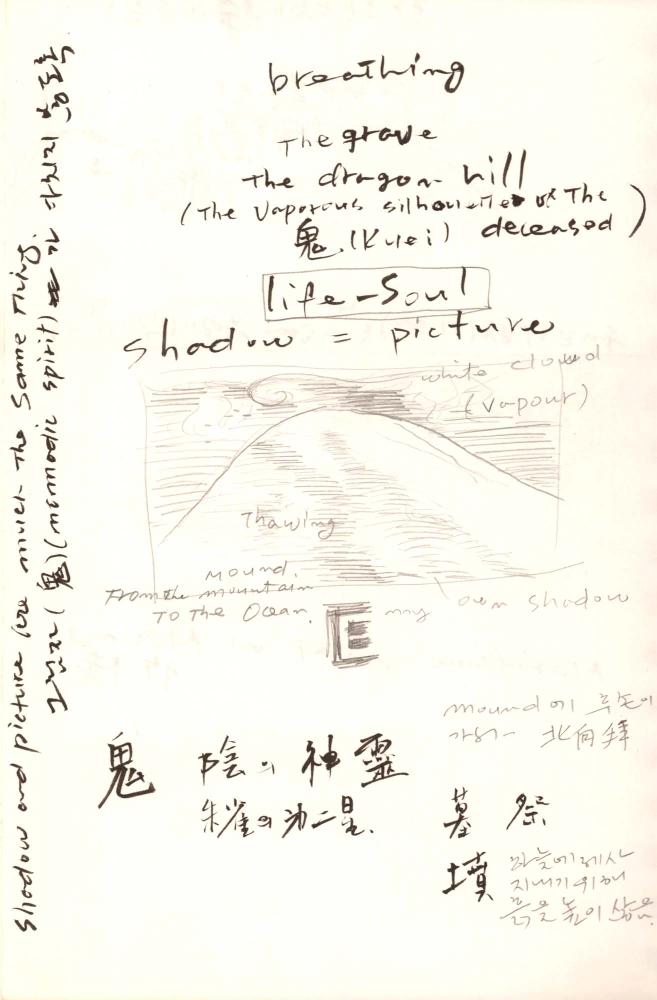 breathing
The grave
The dragon hill
(The Vaporous silhouette of The
鬼 (Kuei) deceased)
life-Soul
shadow = picture
white cloud
(Vapour)
Thawing
mound.
From the mountain
To The Ocean.
my own shadow
E
mound에 후손이
가서 北向拜
鬼 陰의 神靈
朱雀의 第二星.
墓 祭
墳 하늘에 제사
지내기 위해
흙을 높이 쌓음.
Shadow and picture are much the same thing.
그림자(鬼)(nomadic spirit)